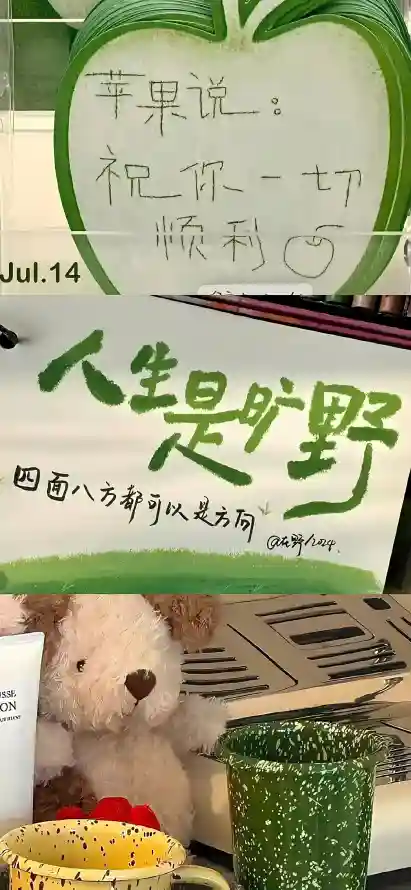 苹果说：
祝你一切
顺利
Jul.14
人生是旷野
四面八方都可以是方向
@在野人024.
SSE
ON